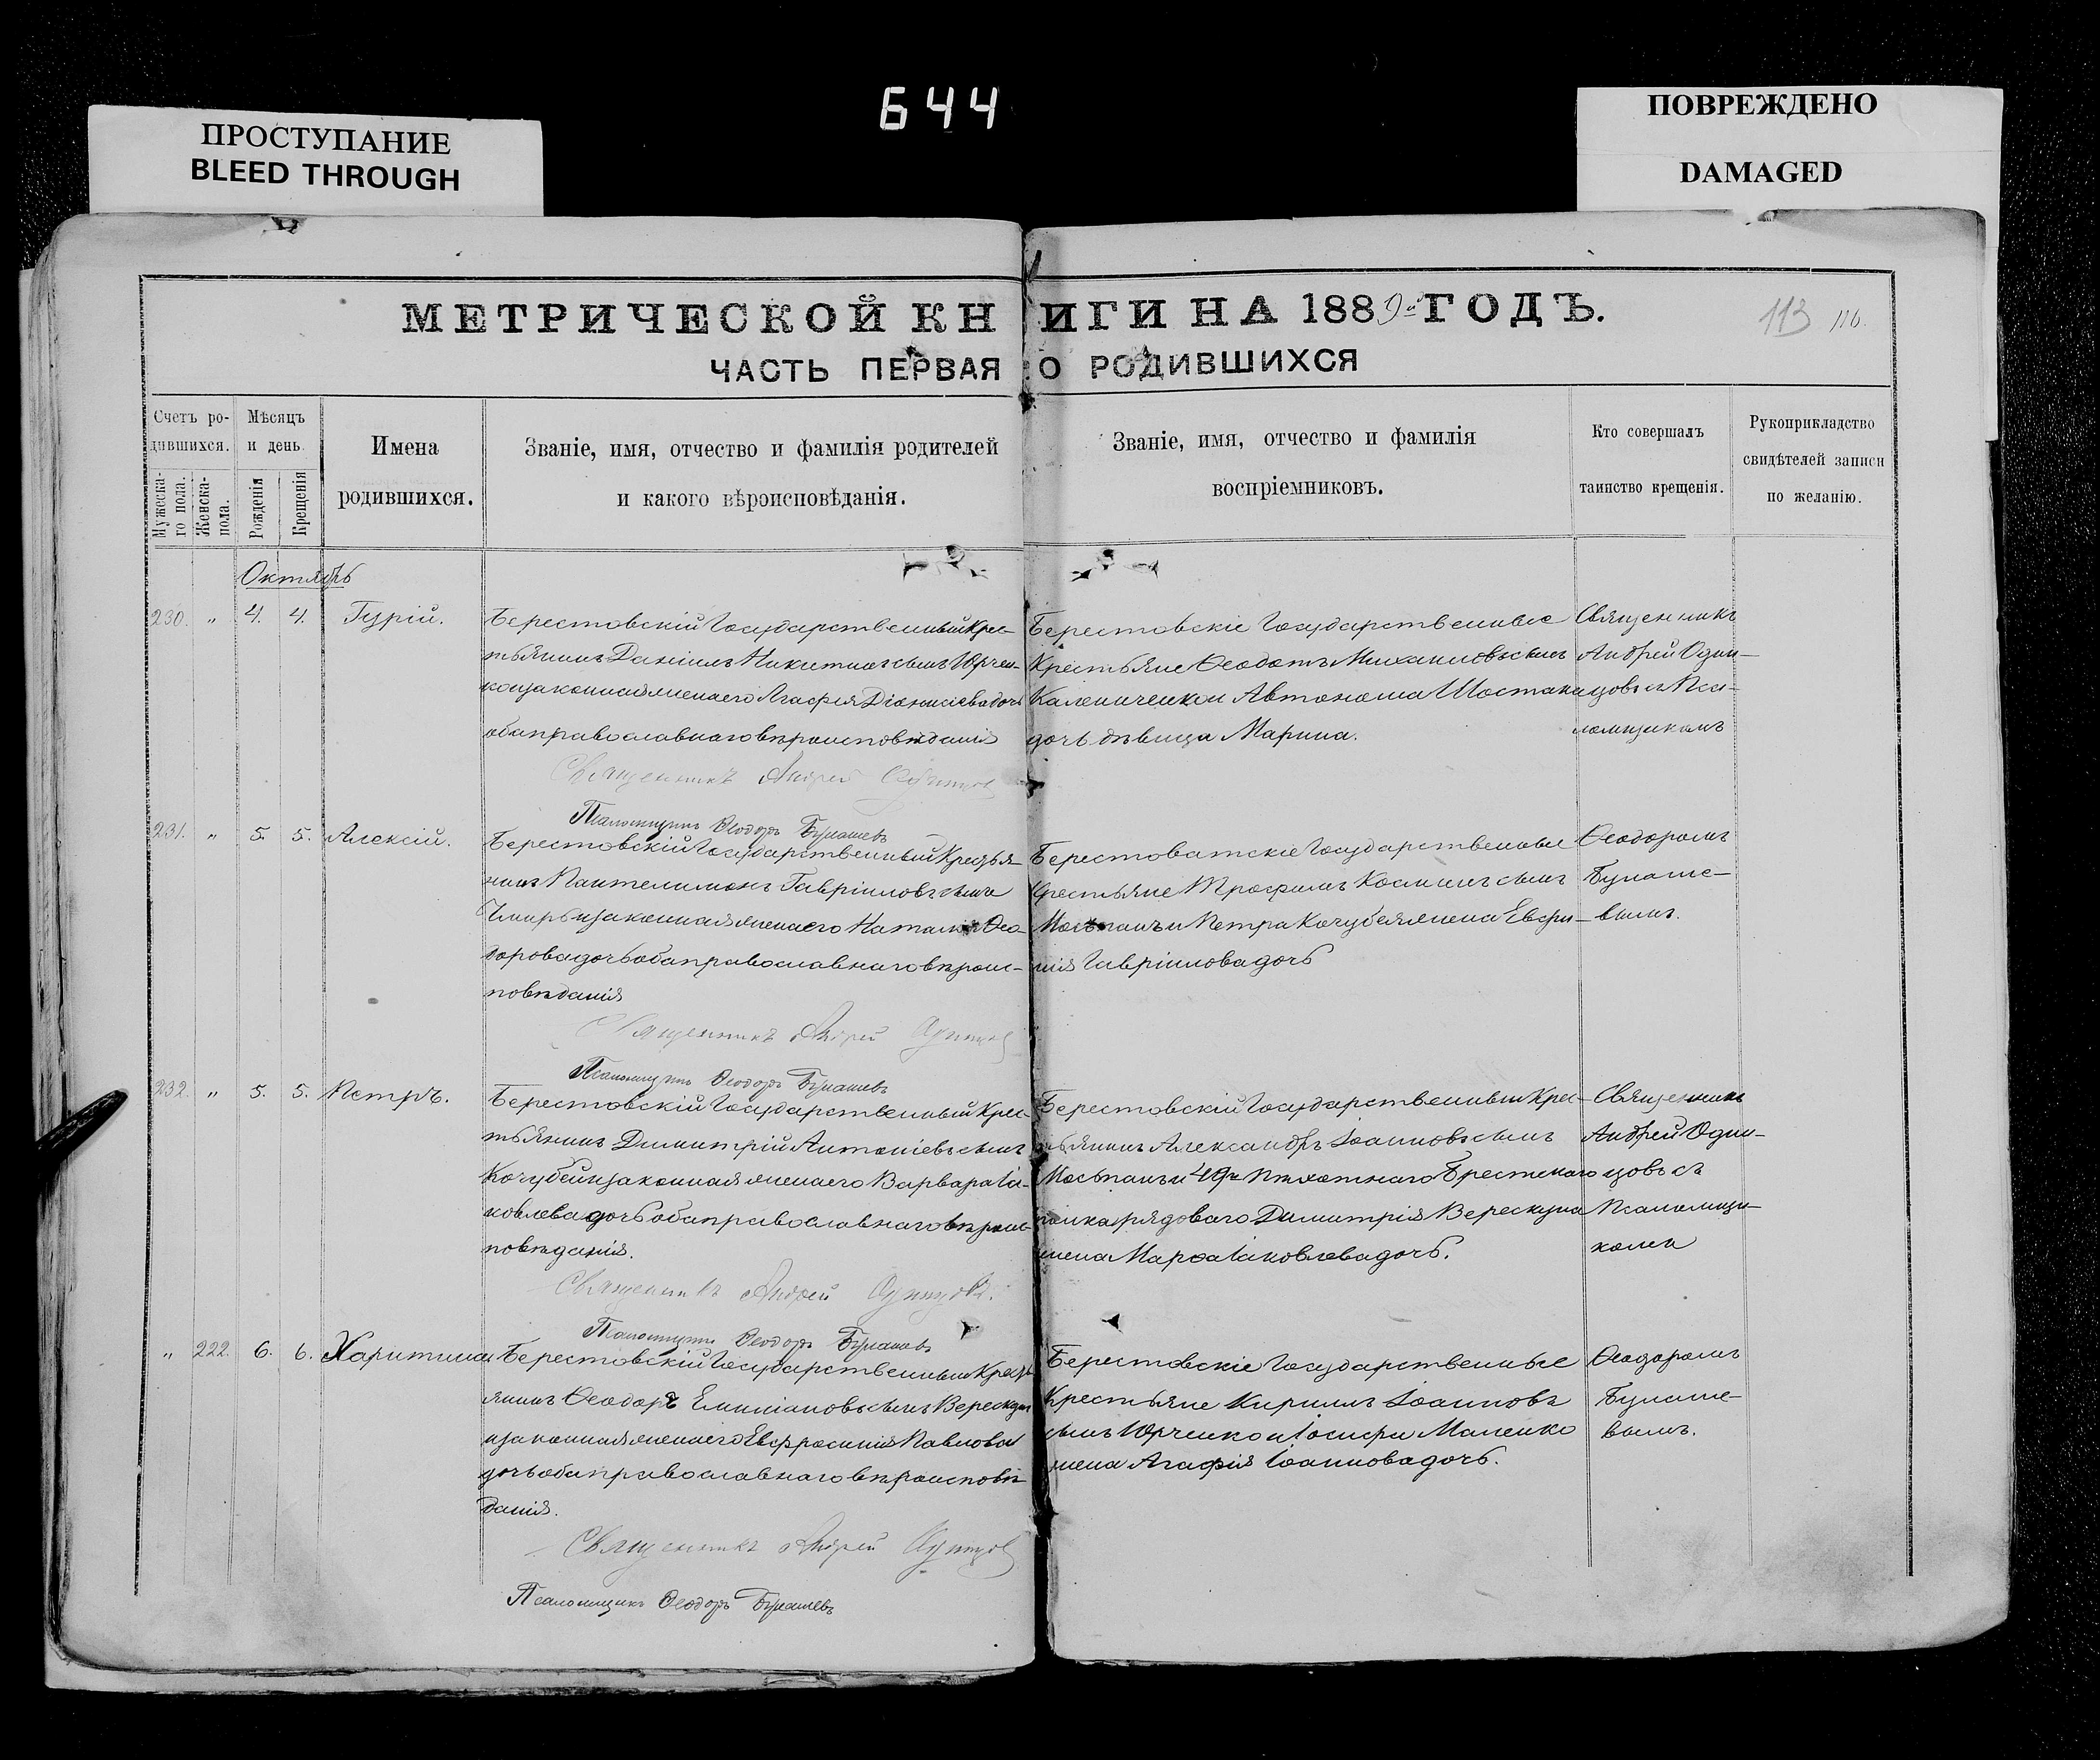 644
ПРОСТУПАНИЕ
BLEED THROUGH
ПОВРЕЖДЕНО
DAMAGED
МЕТРИЧЕСКОЙ КНИГИ НА 1889й ГОДЪ.
113 116.
ЧАСТЬ ПЕРВАЯ О РОДИВШИХСЯ
Счетъ ро-
дившихся.
Мужеска-
го пола.
Женска-
пола.
Мѣсяцъ
и день.
Рожденія
Крещенія
Имена
родившихся.
Званіе, имя, отчество и фамилія родителей
и какого вѣроисповѣданія.
Званіе, имя, отчество и фамилія
воспріемниковъ.
Кто совершалъ
таинство крещенія.
Рукоприкладство
свидѣтелей записи
по желанію.
Октябрь
230. " 4. 4. Гурій.
Берестовскій Государственный Крес-
тьянинъ Даніилъ Никитинъ сынъ Юрчен-
ко и законная жена его Агафія Діонисіева дочь
оба православнаго вѣроисповѣданія
Священникъ Андрей Одинцовъ
Псаломщикъ Ѳеодоръ Булашевъ
Берестовскіе Государственные
Крестьяне Ѳеодотъ Михаиловъ сынъ
Калениченко и Автонома Шостака
дочь дѣвица Марина.
Священникъ
Андрей Один-
цовъ съ Пса-
ломщикомъ
231. " 5. 5. Алексій.
Берестовскій Государственный Крестья-
нинъ Пантелимонъ Гавріиловъ сынъ
Чмирь и законная жена его Наталія Ѳео-
дорова дочь оба православнаго вѣроис-
повѣданія
Священникъ Андрей Одинцовъ
Псаломщикъ Ѳеодоръ Булашевъ
Берестоватскіе Государственные
Крестьяне Трофимъ Косминъ сынъ
Мосьпанъ и Петра Кочубея жена Евфи-
мія Гавріилова дочь
Ѳеодоромъ
Булаше-
вымъ.
232. " 5. 5. Петръ.
Берестовскій Государственный Крес-
тьянинъ Димитрій Антоніевъ сынъ
Кочубей и законная жена его Варвара Іа-
ковлева дочь оба православнаго вѣроис-
повѣданія.
Священникъ Андрей Одинцовъ.
Псаломщикъ Ѳеодоръ Булашевъ
Берестовскій Государственный Крес-
тьянинъ Александръ Іоанновъ сынъ
Мосьпанъ и 49го Пѣхотнаго Брестскаго
полка рядоваго Димитрія Верескуна
жена Марѳа Іаковлева дочь.
Священникъ
Андрей Один-
цовъ съ
Псаломщи-
комъ
" 222. 6. 6. Харитина
Берестовскій Государственный Кресть-
янинъ Ѳеодоръ Емиліановъ сынъ Верескун
и законная жена его Евфросинія Павлова
дочь оба православнаго вѣроисповѣ-
данія.
Священникъ Андрей Одинцовъ
Псаломщикъ Ѳеодоръ Булашевъ
Берестовскіе Государственные
Крестьяне Кириллъ Іоанновъ
сынъ Юрченко и Іосифа Маленко
жена Агафія Іоаннова дочь.
Ѳеодоромъ
Булаше-
вымъ.